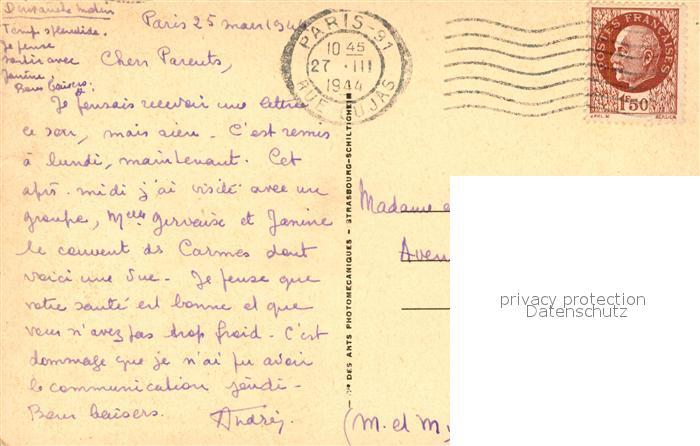 Dimanche matin
Temps splendide.
Je pense
sortir avec
Janine.
Bons baisers.
Paris 25 mars 1944
Chers Parents,
Je pensais recevoir une lettre
ce soir, mais rien. C'est remis
à lundi, maintenant. Cet
après-midi j'ai visité avec un
groupe, Melles Gervaise et Janine
le couvent des Carmes dont
voici une vue. Je pense que
votre santé est bonne et que
vous n'avez pas trop froid. C'est
dommage que je n'ai pu avoir
la communication jeudi.
Bons baisers. André
PARIS-91
10 45
27 · III
1944
RUE CUJAS
POSTES FRANÇAISES
1F50
Cie DES ARTS PHOTOMECANIQUES - STRASBOURG-SCHILTIGHEIM
Madame
Aven
(M. et M
privacy protection
Datenschutz